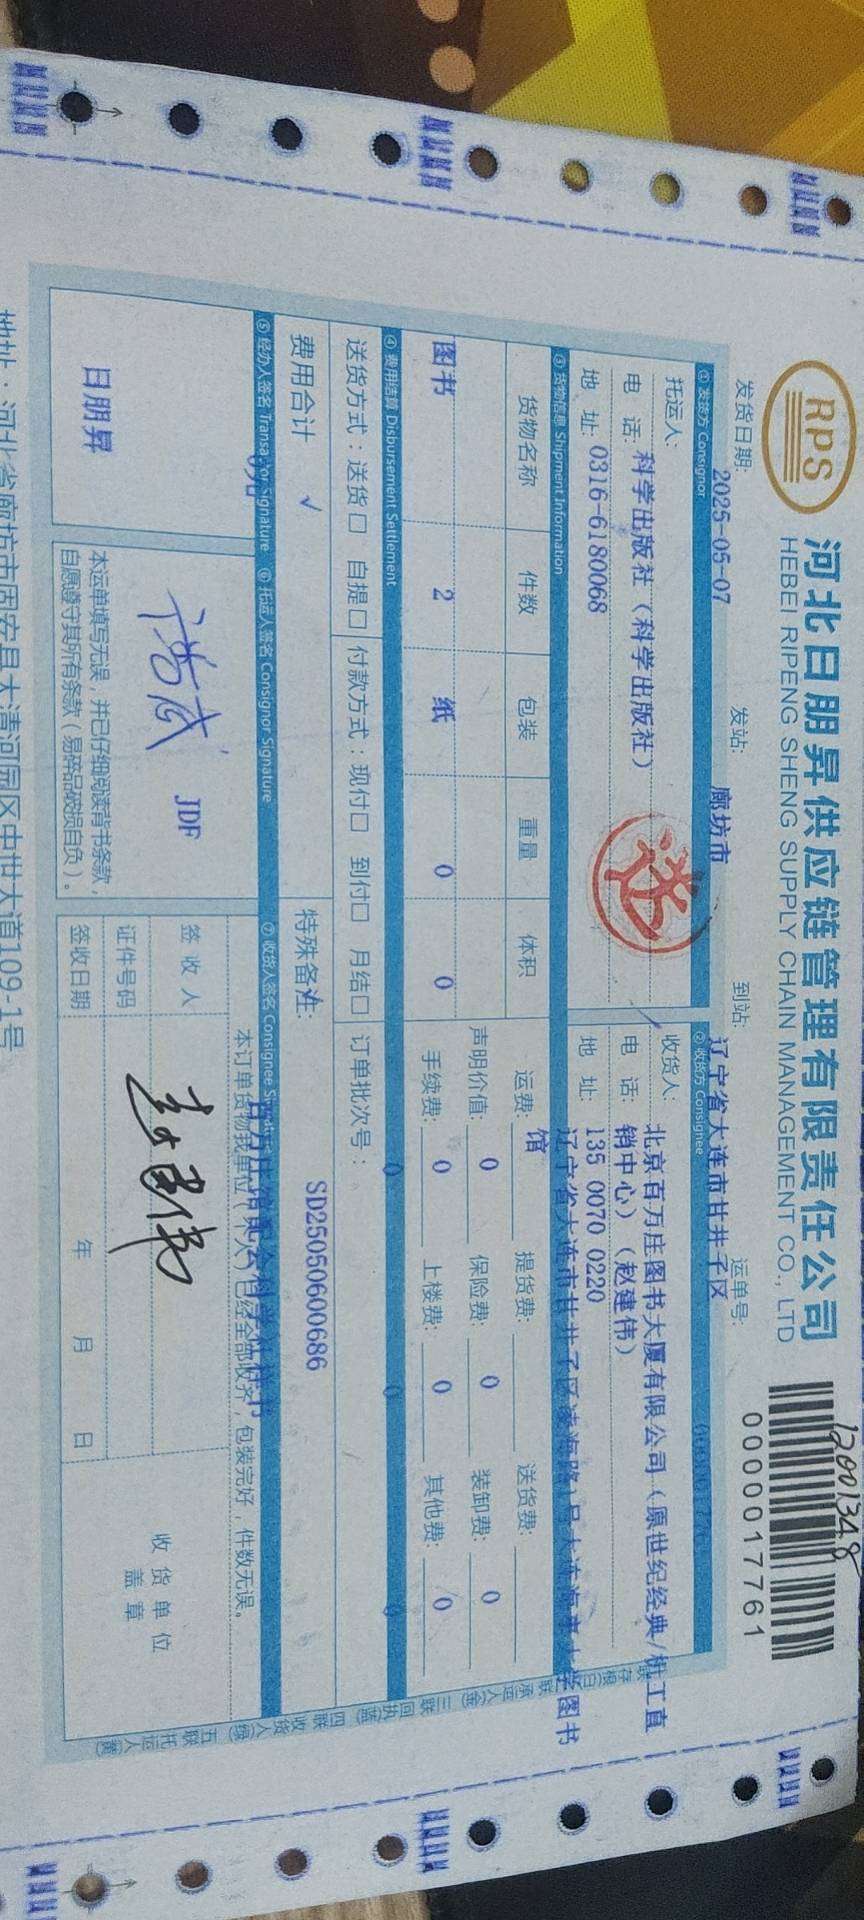 RPS
河北日朋昇供应链管理有限责任公司
HEBEI RIPENG SHENG SUPPLY CHAIN MANAGEMENT CO., LTD
12001348
0000017761
发货日期: 2025-05-07 发站: 廊坊市 到站: 辽宁省大连市甘井子区 运单号:
① 发货方 Consignor
托运人: 科学出版社（科学出版社）
电 话: 0316-6180068
地 址:
送
② 收货方 Consignee
收货人: 北京百万庄图书大厦有限公司（原世纪经典/机工直
销中心）（赵建伟）
电 话: 135 0070 0220
地 址: 辽宁省大连市甘井子区凌海路1号大连海事大学图书
馆
③ 货物信息 Shipment Information
货物名称 件数 包装 重量 体积
图书 2 纸 0 0
运费: 提货费: 送货费:
声明价值: 0 保险费: 0 装卸费: 0
手续费: 0 上楼费: 0 其他费: 0
④ 费用结算 Disbursement Settlement
0 0 0
送货方式：送货□ 自提□ 付款方式：现付□ 到付□ 月结□ 订单批次号：
费用合计 √ 特殊备注: SD25050600686
⑤ 经办人签名 Transactor Signature ⑥ 托运人签名 Consignor Signature ⑦ 收货人签名 Consignee Signature
日朋昇
JDF
本运单填写无误，并已仔细阅读背书条款，
自愿遵守其所有条款（易碎品破损自负）。
本订单货物我单位（个人）已经全部收齐，包装完好，件数无误。
签 收 人
证件号码
签收日期 年 月 日
收 货 单 位
盖 章
地址：河北省廊坊市固安县大清河园区中世大道109-1号